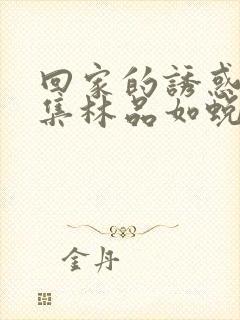 回家的誘惑
集林品如蛻
金丹